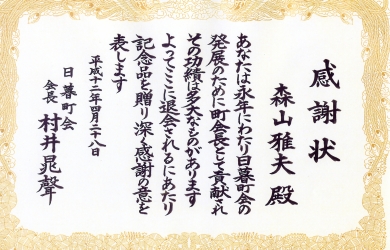 感謝状
森山雅夫 殿
あなたは永年にわたり日暮町会の
発展のために町会長として貢献され
その功績は多大なものがあります
よってここに退会されるにあたり
記念品を贈り深く感謝の意を
表します
平成十二年四月二十八日
日暮町会
会長 村井晁聲